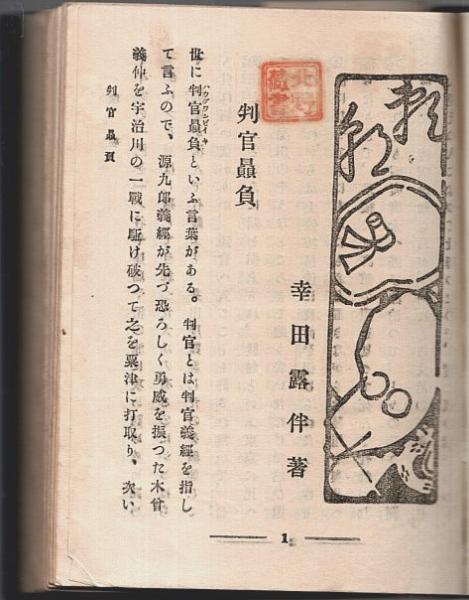 頼朝
幸田露伴著
判官贔負
世に判官贔負といふ言葉がある。判官とは判官義經を指し
て言ふので、源九郎義經が先づ恐ろしく勇威を振つた木曾
義仲を宇治川の一戰に駈け破つて之を粟津に打取り、次い
判官贔負
1